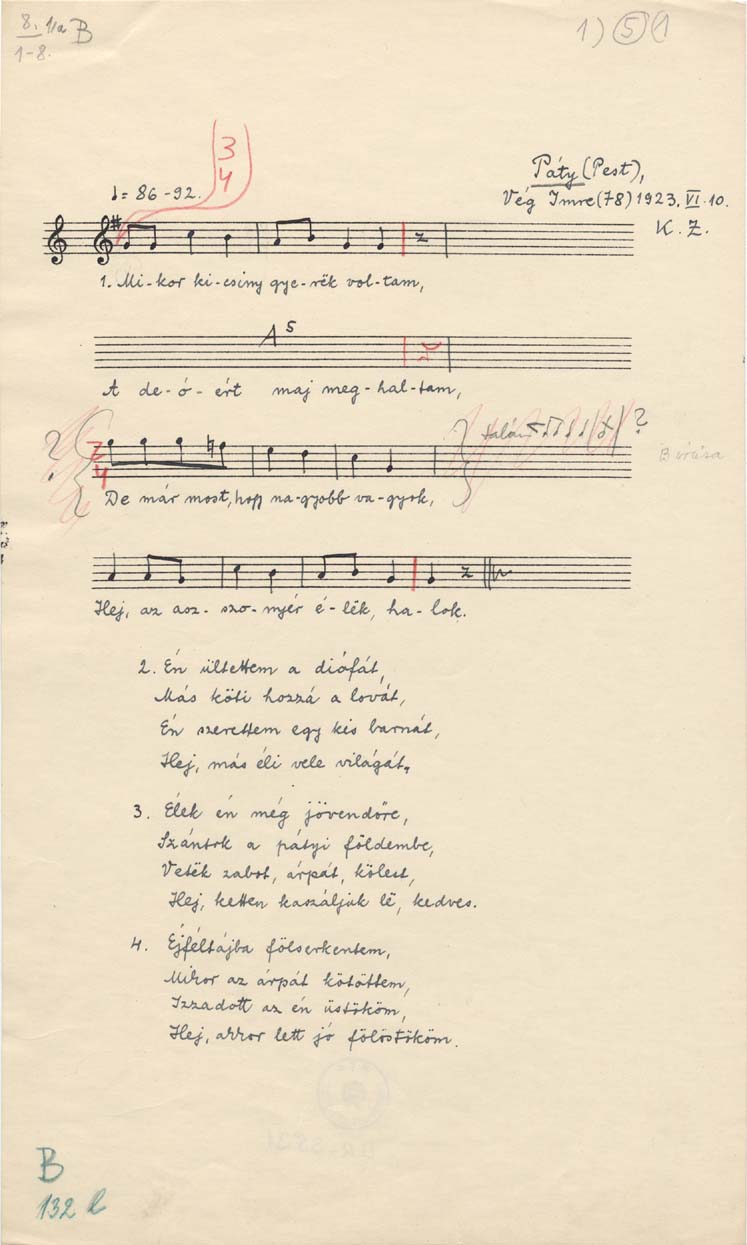 8. 1/a B
1-8.
1) 5 1
3
4
Páty (Pest),
Vég Imre (78) 1923. VI. 10.
K. Z.
♩ = 86-92.
1. Mi-kor ki-csiny gye-rëk vol-tam,
A⁵
A de-ó-ért maj meg-hal-tam,
? talán ?
2
4
De már most, hogy na-gyobb va-gyok,
Hej, az asz-szo-nyér é-lëk, ha-lok.
2. Én ültettem a diófát,
Más köti hozzá a lovát,
Én szerettem egy kis barnát,
Hej, más éli vele világát.
3. Élek én még jövendőre,
Szántok a pátyi földembe,
Veték zabot, árpát, kölest,
Hej, ketten kaszáljuk lë, kedves.
4. Éjféltájba fölserkentem,
Mikor az árpát kötöttem,
Izzadott az én üstököm,
Hej, akkor lett jó fölöstököm.
B
132 l